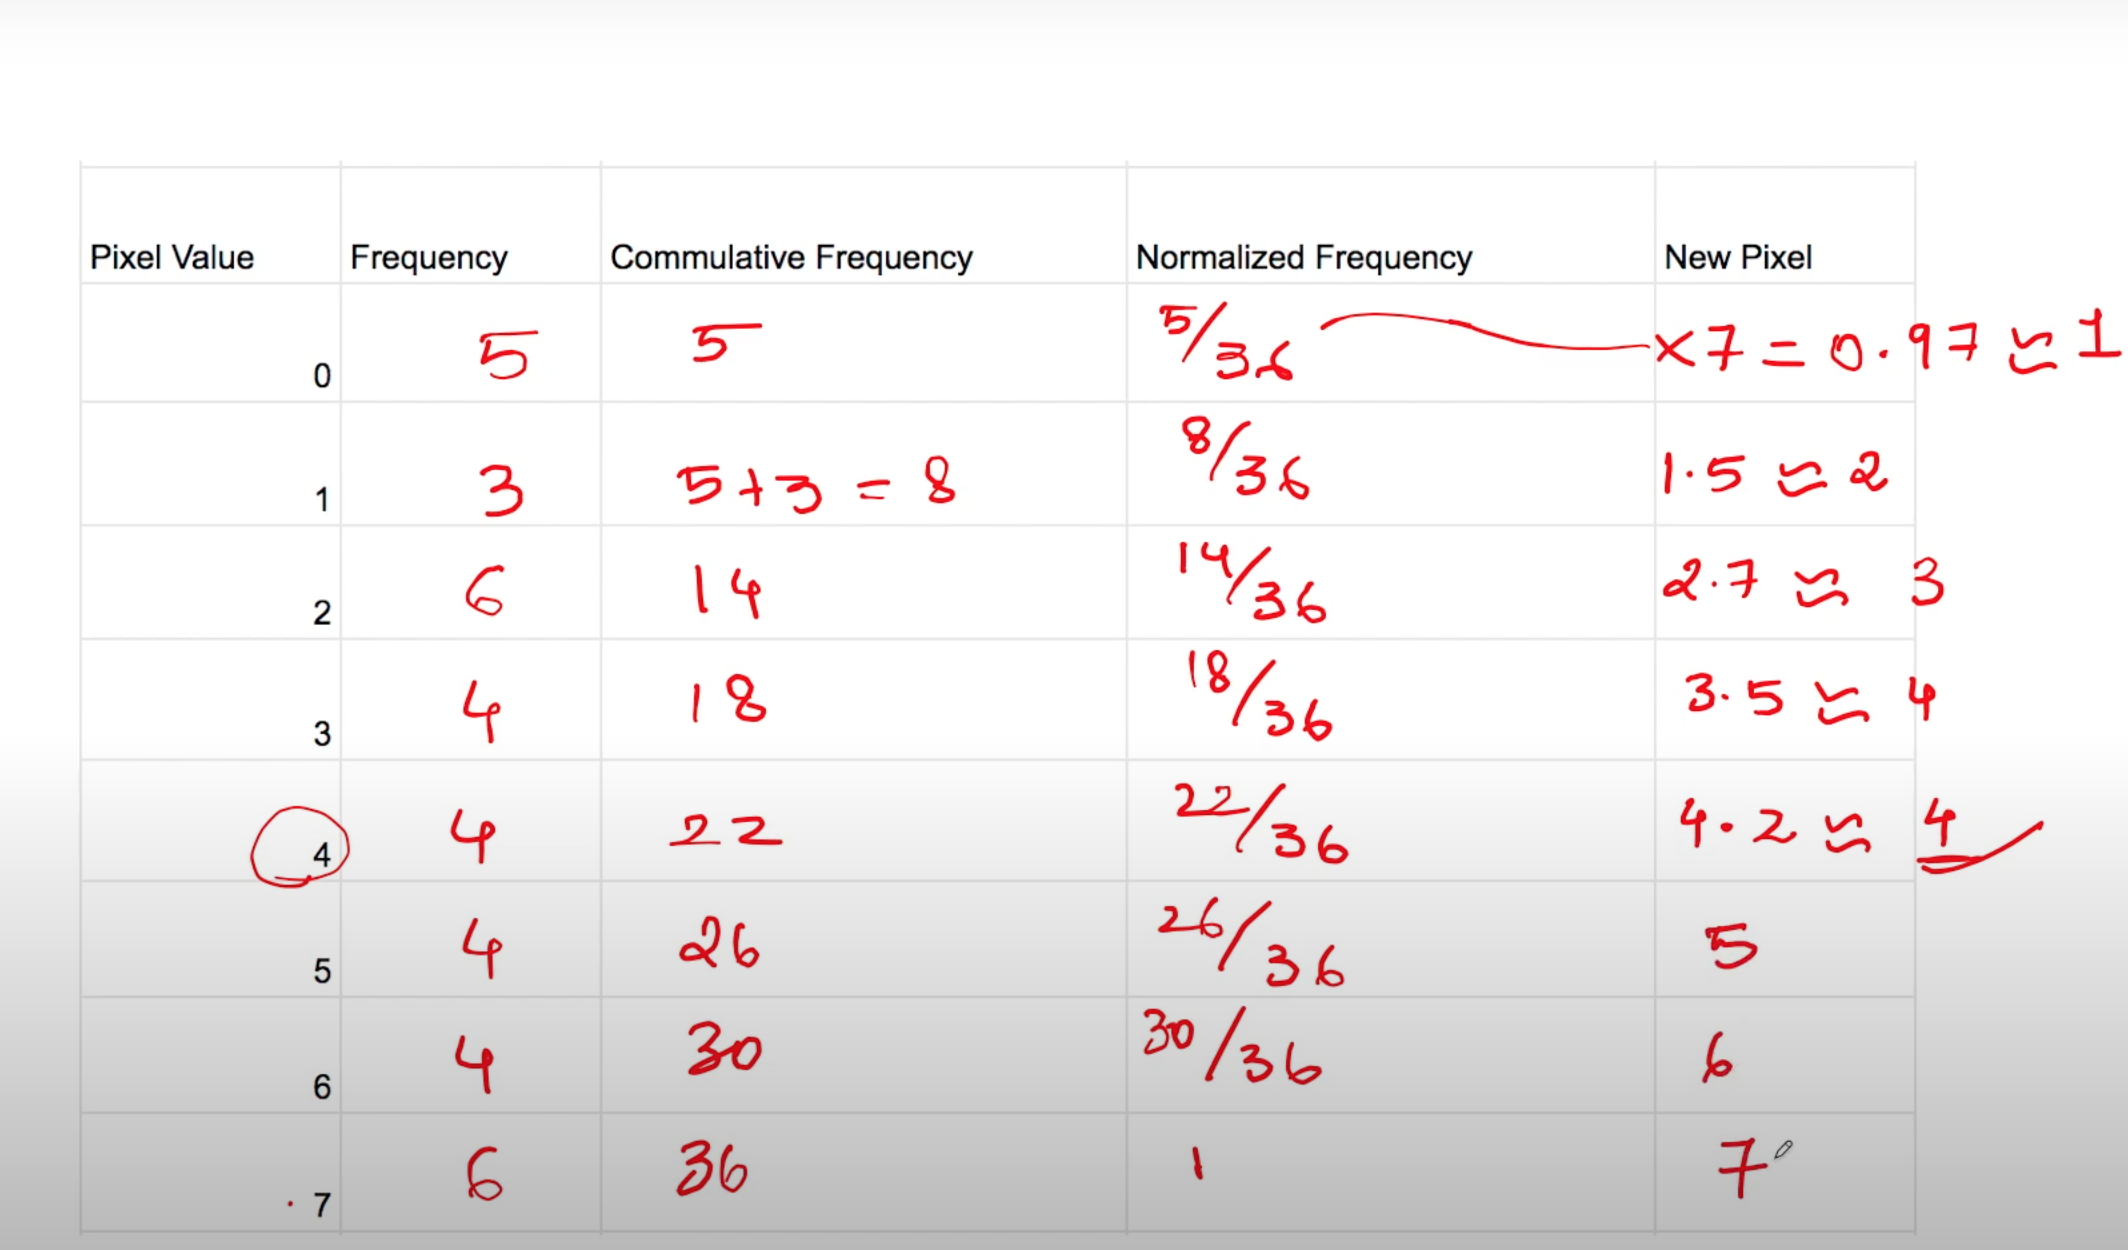 Pixel Value Frequency Commulative Frequency Normalized Frequency New Pixel
0 5 5 5/36 ×7 = 0.97 ≈ 1
1 3 5+3 = 8 8/36 1.5 ≈ 2
2 6 14 14/36 2.7 ≈ 3
3 4 18 18/36 3.5 ≈ 4
4 4 22 22/36 4.2 ≈ 4
5 4 26 26/36 5
6 4 30 30/36 6
7 6 36 1 7